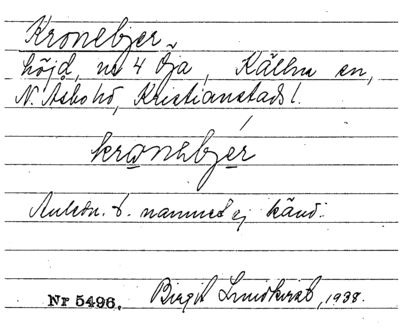 Kronebjer
höjd, nr 4 Öja, Källna sn,
N. Åsbo hd, Kristianstads l.
kronebjer
Anledn. t. namnet ej känd.
Nr 5496. Birgit Lindkvist, 1938.